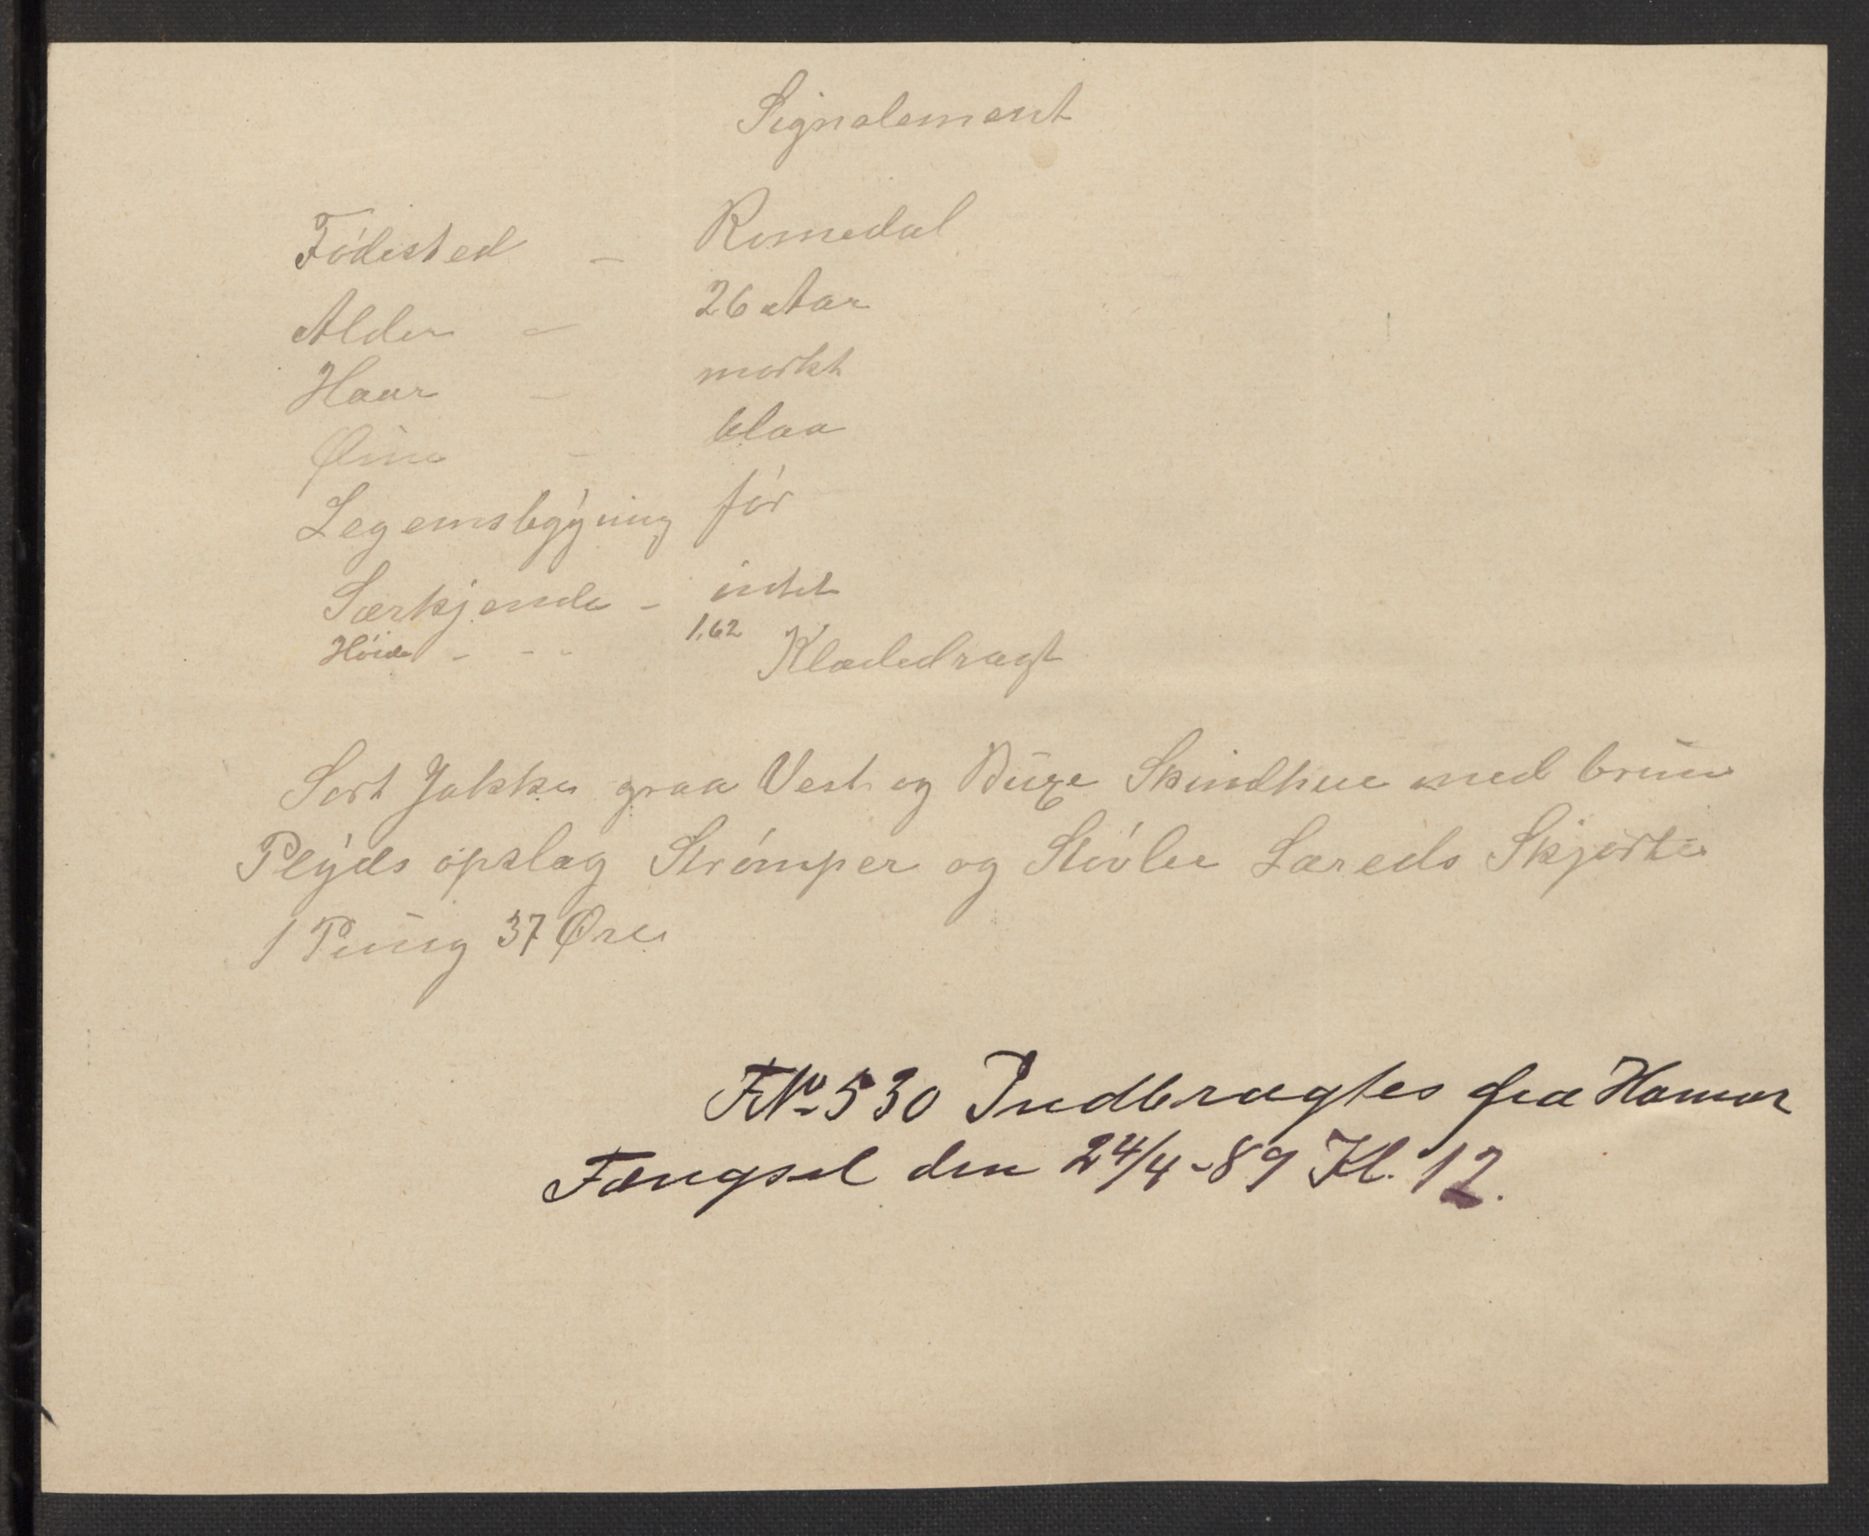 Signalement
Födested – Romedal
Alder – 26 Aar
Haar – mørkt
Øine – blaa
Legemsbygning før
Særkjende – intet
Høide – – – 1.62
Klædedragt
Sort Jakke graa Vest og Buxe Skindhue med brun
Plyds opslag Strømper og Støvler Læreds Skjorte
1 Pung 37 Øre
FNo 530 Indbragtes fra Hamar
Fængsel den 24/4-89 Kl. 12.